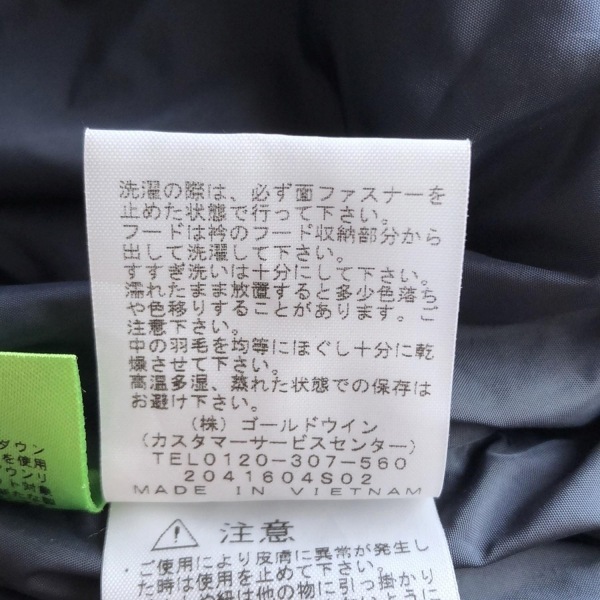 洗濯の際は、必ず面ファスナーを
止めた状態で行って下さい。
フードは衿のフード収納部分から
出して洗濯して下さい。
すすぎ洗いは十分にして下さい。
濡れたまま放置すると多少色落ち
や色移りすることがあります。ご
注意下さい。
中の羽毛を均等にほぐし十分に乾
燥させて下さい。
高温多湿、蒸れた状態での保存は
お避け下さい。
(株)ゴールドウイン
(カスタマーサービスセンター)
TEL0120-307-560
2041604S02
MADE IN VIETNAM
ダウン
を使用
ダウンリ
注意
ご使用により皮膚に異常が発生し
た時は使用を止めて下さい。
紐は他の物に引っ掛かり